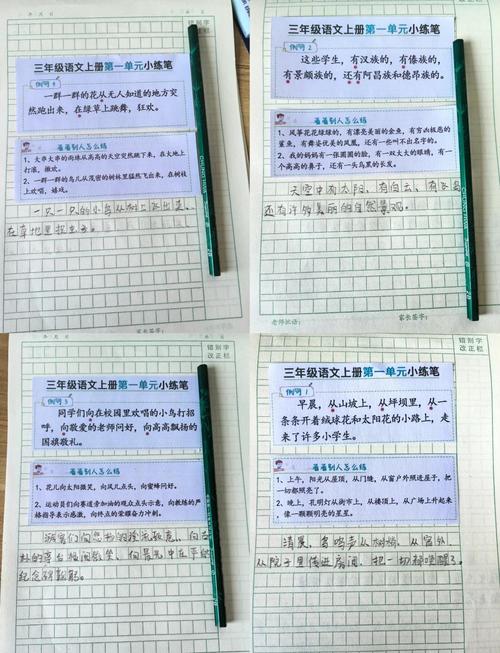 年 月 日
错别字
改正栏
三年级语文上册第一单元小练笔
例句 4
一群一群的花从无人知道的地方突
然跑出来，在绿草上跳舞，狂欢。
看看别人怎么练
1、大串大串的雨珠从高高的天空突然跳下来，在大地上
打滚、撒欢。
2、一群一群的鸟儿从茂密的树林里猛然飞出来，在树枝
上欢唱、嬉戏。
一只一只的小鸟从树上飞出来，
在草地里捉虫子。
家长签字：
错别字
改正栏
三年级语文上册第一单元小练笔
例句 2
这些学生，有汉族的，有傣族的，
有景颇族的，还有阿昌族和德昂族的。
看看别人怎么练
1、风筝花花绿绿的，有漂亮美丽的金鱼，有穷凶极恶的
鲨鱼，有舞姿优美的凤凰，还有一些叫不出名字的。
2、我的妈妈有一张圆圆的脸，有一双大大的眼睛，有一
个高高的鼻子，还有一头乌黑的长发。
天空中有太阳，有白云，有飞鸟
还有许多美丽的自然景观。
老师批语：
家长签字：
年 月 日
错别字
改正栏
三年级语文上册第一单元小练笔
例句 3
同学们向在校园里欢唱的小鸟打招
呼，向敬爱的老师问好，向高高飘扬的
国旗敬礼。
看看别人怎么练
1、花儿向太阳微笑，向风儿点头，向蜜蜂问好。
2、运动员们向赛道旁加油的观众点头示意，向教练的严
格指导表示感激，向终点的荣耀奋力冲刺。
错别字
改正栏
三年级语文上册第一单元小练笔
例句 1
早晨，从山坡上，从坪坝里，从一
条条开着绒球花和太阳花的小路上，走
来了许多小学生。
看看别人怎么练
1、上午，阳光从屋顶，从门缝，从窗户外照进屋子，把
一切都照亮了。
2、晚上，孔明灯从街市上、从楼顶上，从广场上升起来
像一颗颗明亮的星星。
清晨，鸟鸣声从树梢，从窗外
从院子里传进房间，把一切都唤醒了。